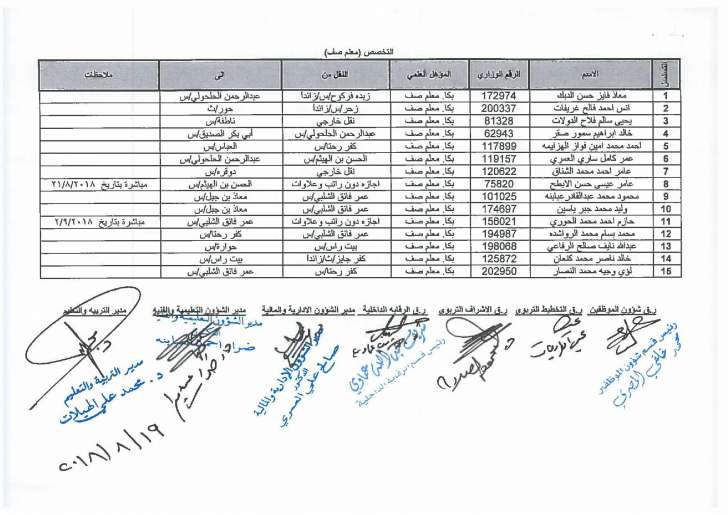 التخصص (معلم صف)
التسلسل الاسم الرقم الوزاري المؤهل العلمي النقل من الى ملاحظات
1 معاذ فايز حسن الدبك 172974 بكا. معلم صف زبده فركوح/س/زائداً عبدالرحمن الحلحولي/س
2 انس احمد فالح غريفات 200337 بكا. معلم صف زحر/س/زائداً حور/ث
3 يحيى سالم فلاح الدولات 81328 بكا. معلم صف نقل خارجي ناطفة/س
4 خالد ابراهيم سمور صقر 62943 بكا. معلم صف عبدالرحمن الحلحولي/س أبي بكر الصديق/س
5 احمد محمد امين فواز الهزايمه 117899 بكا. معلم صف كفر رحتا/س العباس/س
6 عمر كامل ساري العمري 119157 بكا. معلم صف الحسن بن الهيثم/س عبدالرحمن الحلحولي/س
7 عامر احمد محمد الشناق 120622 بكا. معلم صف نقل خارجي دوقره/س
8 عامر عيسى حسن الابطح 75820 بكا. معلم صف اجازه دون راتب وعلاوات الحسن بن الهيثم/س مباشرة بتاريخ ٢١/٨/٢٠١٨
9 محمود محمد عبدالقادر عبابنه 101025 بكا. معلم صف عمر فائق الشلبي/س معاذ بن جبل/س
10 وليد محمد جبر ياسين 174697 بكا. معلم صف عمر فائق الشلبي/س معاذ بن جبل/س
11 حازم احمد محمد الحوري 156021 بكا. معلم صف اجازه دون راتب وعلاوات عمر فائق الشلبي/س مباشرة بتاريخ ٢/٩/٢٠١٨
12 محمد بسام محمد الرواشده 194987 بكا. معلم صف عمر فائق الشلبي/س كفر رحتا/س
13 عبدالله نايف صالح الرفاعي 198068 بكا. معلم صف بيت راس/س حواره/س
14 خالد ناصر محمد كنعان 125872 بكا. معلم صف كفر جايز/ث/زائداً بيت راس/س
15 لؤي وجيه محمد النصار 202950 بكا. معلم صف كفر رحتا/س عمر فائق الشلبي/س
ر.ق شؤون الموظفين ر.ق التخطيط التربوي ر.ق الاشراف التربوي ر.ق الرقابه الداخلية مدير الشؤون الادارية والمالية مدير الشؤون التعليمية والفنية مدير التربيه والتعليم
رئيس قسم شؤون الموظفين
رئيس قسم الرقابة الداخلية
مدير الشؤون الإدارية والمالية
صالح علي العمري
مدير الشؤون التعليمية والفنية
مدير التربية والتعليم
د. محمد علي
٢٠١٨/٨/١٩